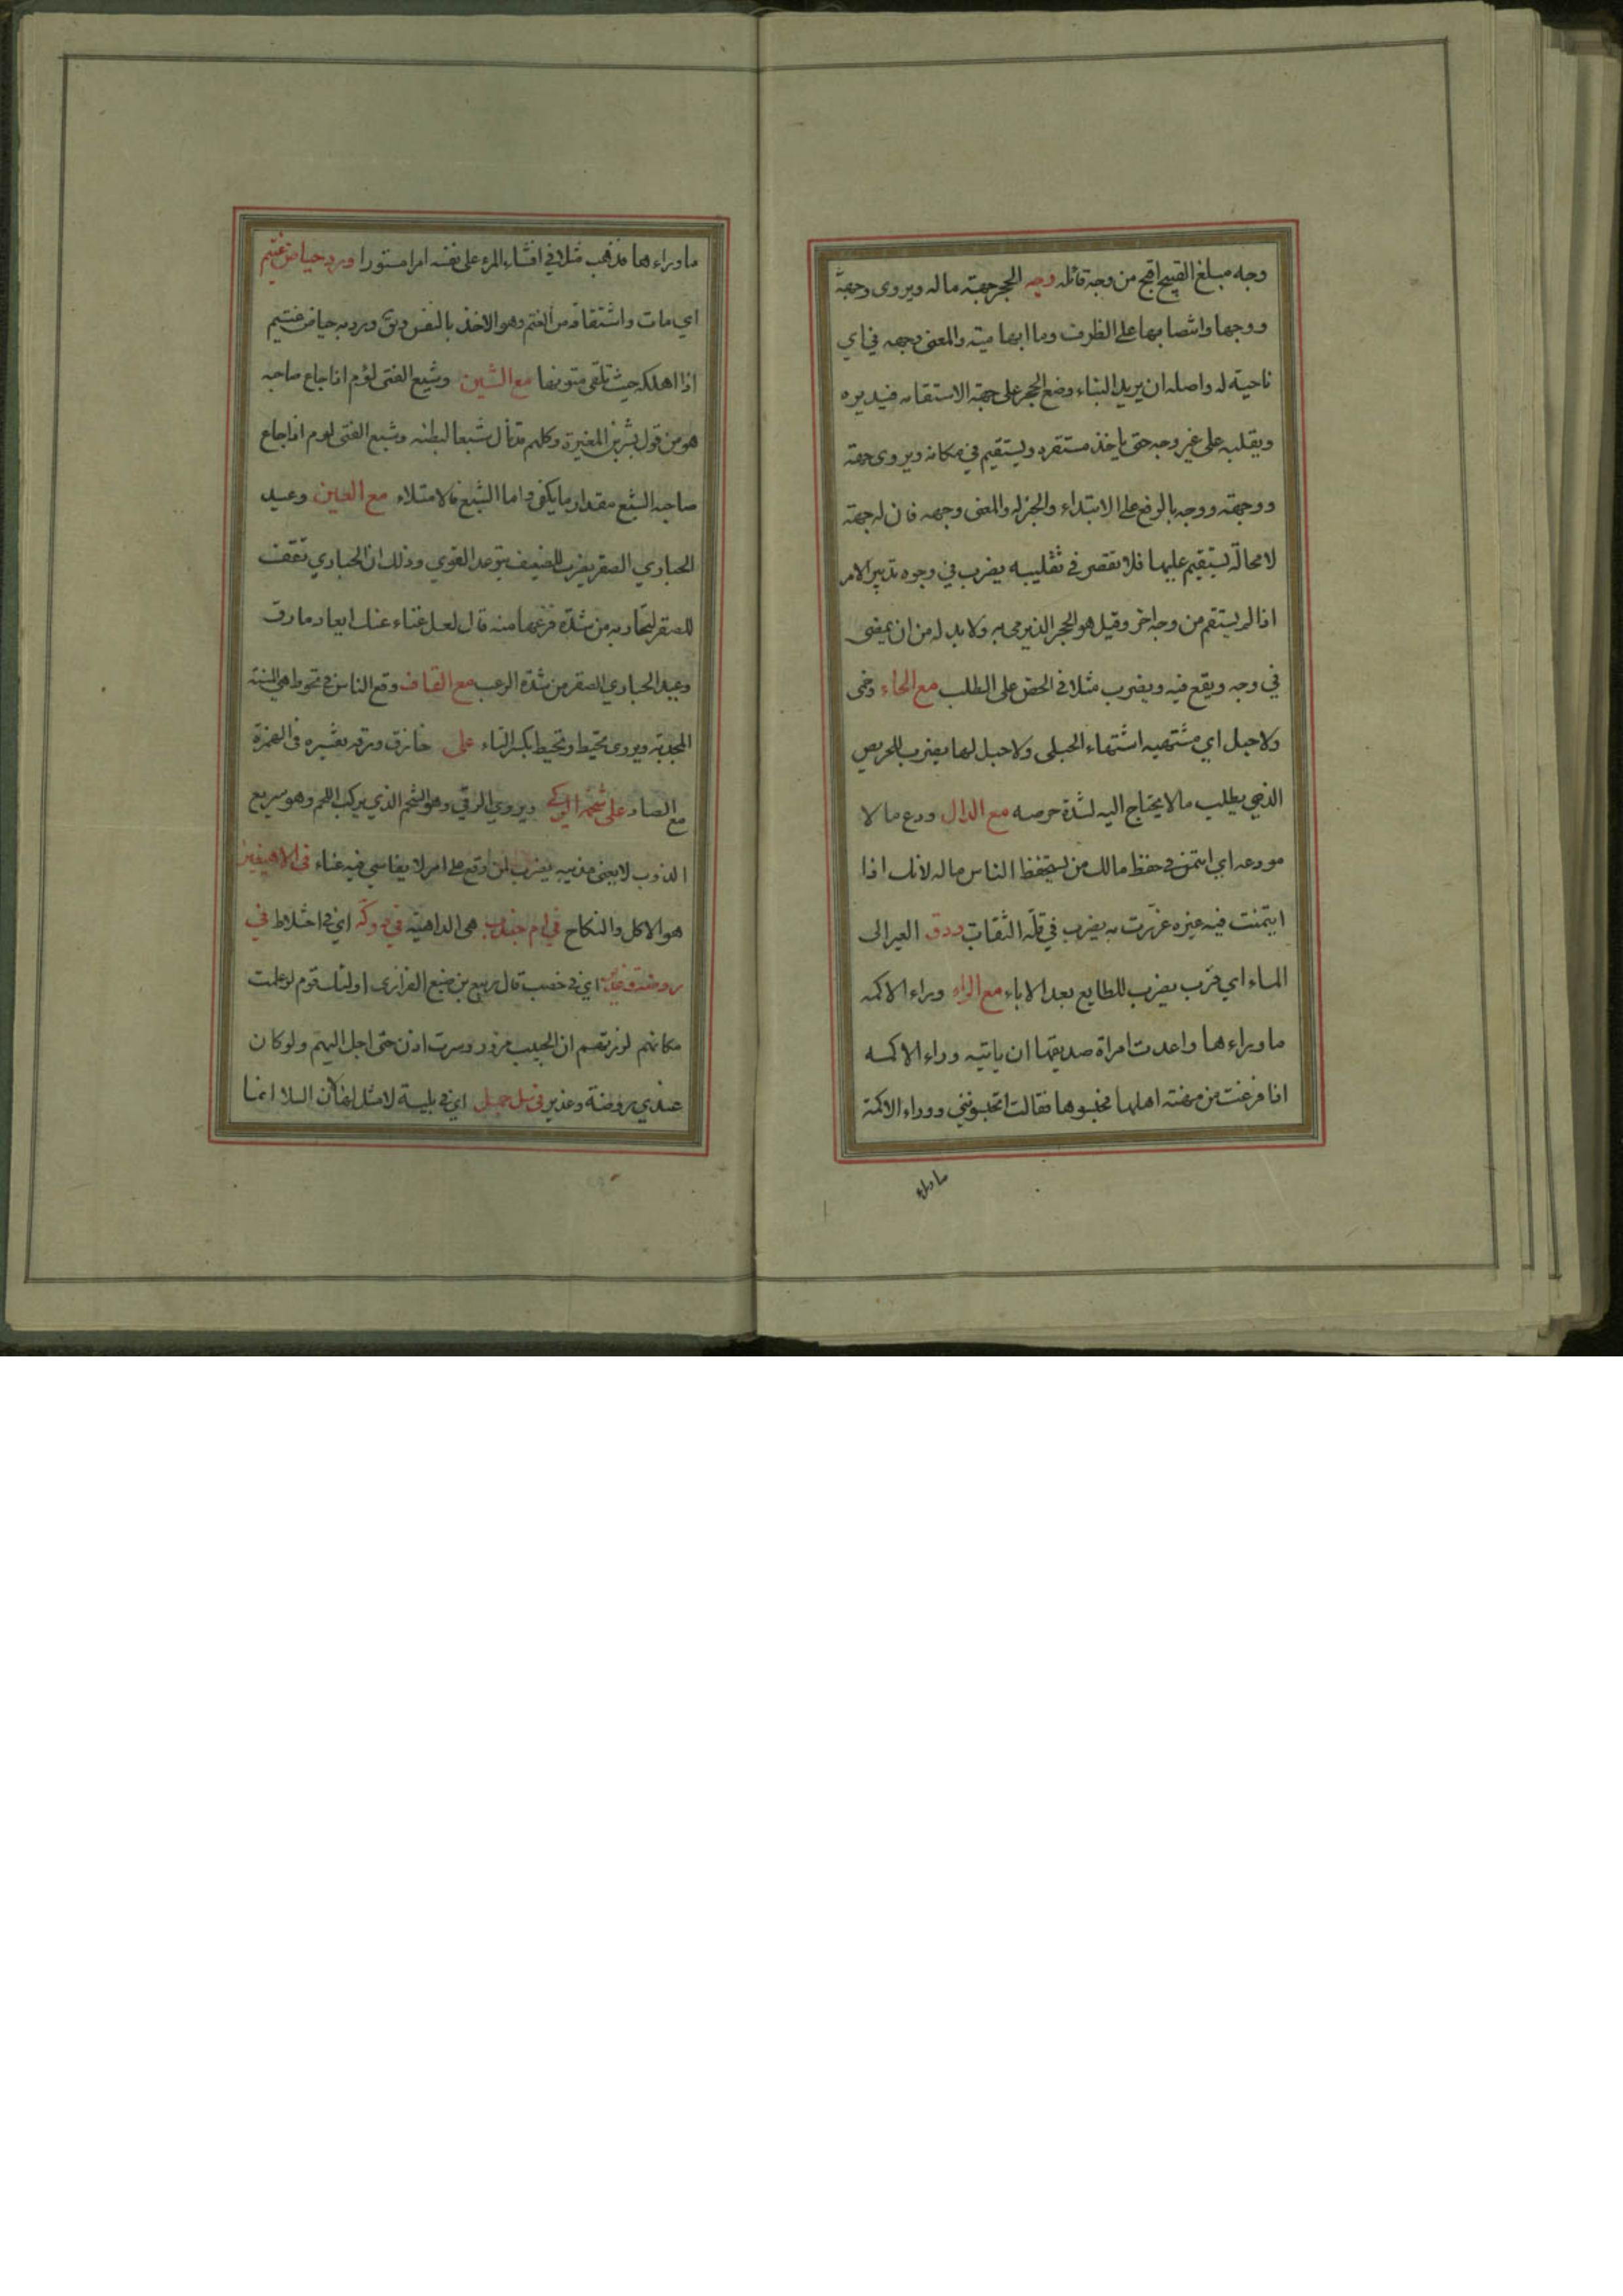 وجه مبلغ القبيح اقبح من وجه قائله وجه الحجر جهة ماله ويروى وجهة
ووجها وانتصابها على الظرف وما ابهامية والمعنى وجهه في اي
ناحية له واصله ان يريد البناء وضع الحجر على جهة الاستقامه فيديره
ويقلبه على غير وجه حتى ياخذ مستقره ويستقيم في مكانه ويروى جهة
ووجهة ووجه بالرفع على الابتداء والخبر له والمعنى وجهه فان له جهة
لا محالة يستقيم عليها فلا تقصر في تقليبه يضرب في وجوه تدبير الامر
اذا لم يستقم من وجه اخر وقيل هو الحجر الذي يرمى به ولا بد له من ان يمضى
في وجه ويقع فيه ويضرب مثلا في الحض على الطلب مع الحاء وحمى
ولا حبل اي مشتهيه اشتهاء الحبلى ولا حبل لها يضرب للحريص
الذي يطلب ما لا يحتاج اليه لشدة حرصه مع الدال ودع مالا
مودعه اي ايتمن في حفظ مالك من يستحفظ الناس ماله لانك اذا
ايتمنت فيه غيره غررت به يضرب في قلة الثقات ودق العير الى
الماء اي قرب يضرب للطايع بعد الاباء مع الراء وراء الاكمه
ما وراءها واعدت امراة صديقها ان ياتيه وراء الاكمه
اذا فرغت من مهنة اهلها فحبسوها فقالت اتحبسونني ووراء الاكمة
ما وراء
ما وراءها فذهب مثلا في افشاء المرء على نفسه امرا مستورا ورد حياض غتيم
اي مات واشتقاقه من الغتم وهو الاخذ بالنفس ويق وردبه حياض غتيم
اذا اهلكه حيث تلقى متوبفا مع الشين وشبع الفتى لؤم اذا جاع صاحبه
هو من قول بشر بن المغيرة وكلهم قد نال شبعا لبطنه وشبع الفتى لوم اذا جاع
صاحبه الشبع مقدار ما يكفى واما الشبع فالامتلاء مع العين وعيد
الحبارى الصقر يضرب للضعيف يتوعد القوي وذلك ان الحباري تقف
للصقر لتحاربه من شدة فزعها منه قال لعل غناء عنك ابعاد مارق
وعيد الحباري الصقر من شدة الرعب مع القاف وقع الناس في تحوط هي السنة
المجدبة ويروى تحيط وتحيط بكسر التاء على خازق ورقه تفسيره في الهمزة
مع الصاد على شحمة الركي ويروي الرقي وهو الشحم الذي يركب اللحم وهو سريع
الذوب لا يعنى مذيبه يضرب لمن وقع على امر لا يقاسي فيه عناء في الاهيفين
هو الاكل والنكاح في ام جندب هى الداهية في دوكة اي في اختلاط في
روضة وغدير اي في خصب قال ربيع بن ضبع الفزارى اولئك قوم لو علمت
مكانهم لزرتهم ان الحبيب مزور وسرت اذن حتى احل اليهم ولو كان
عندي روضة وغدير في سلى جمل اي في بلية لا مثل لها لان السلا انما